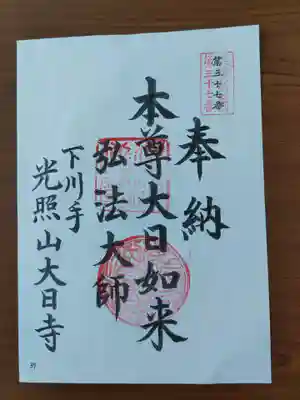 第三十七番
奉納
本尊大日如来
弘法大師
下川手
光照山大日寺
37